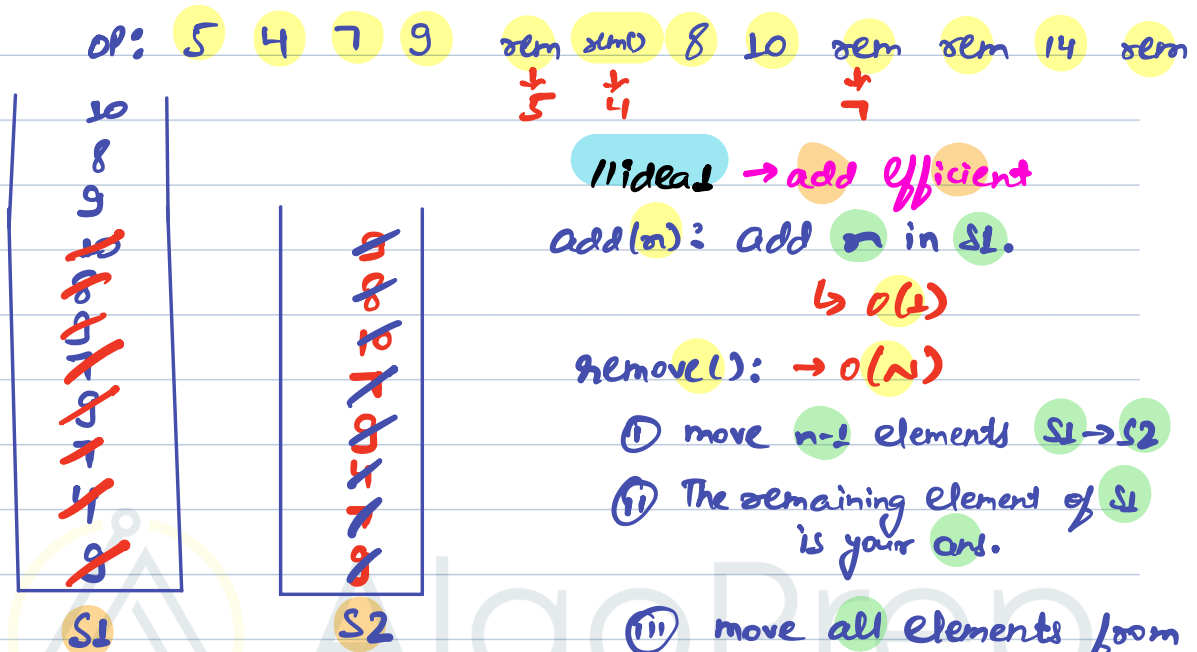 op: 5 4 7 9 rem rem() 8 10 rem rem 14 rem
5 4 7
10
8
9
10
8
9
7
9
7
4
9
8
10
7
9
4
7
9
S1
S2
//idea1 → add efficient
add(n): add n in S1.
↳ O(1)
remove(): → O(N)
(i) move n-1 elements S1→S2
(ii) The remaining element of S1
is your ans.
(iii) move all elements from
AlgoPrep